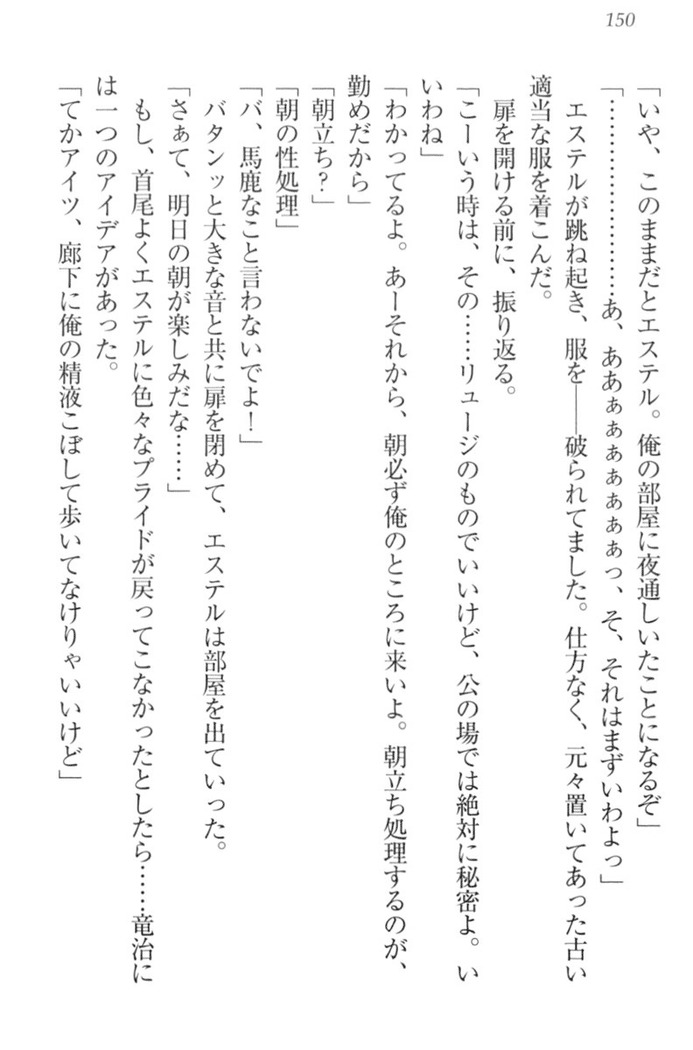 150
「いや、このままだとエステル。俺の部屋に夜通しいたことになるぞ」
「………………………あ、ああぁぁぁぁぁぁぁっ、そ、それはまずいわよっ」
　エステルが跳ね起き、服を――破られてました。仕方なく、元々置いてあった古い
適当な服を着こんだ。
　扉を開ける前に、振り返る。
「こーいう時は、その……リュージのものでいいけど、公の場では絶対に秘密よ。い
いわね」
「わかってるよ。あーそれから、朝必ず俺のところに来いよ。朝立ち処理するのが、
勤めだから」
「朝立ち？」
「朝の性処理」
「バ、馬鹿なこと言わないでよ！」
　バタンッと大きな音と共に扉を閉めて、エステルは部屋を出ていった。
「さぁて、明日の朝が楽しみだな……」
　もし、首尾よくエステルに色々なプライドが戻ってこなかったとしたら……竜治に
は一つのアイデアがあった。
「てかアイツ、廊下に俺の精液こぼして歩いてなけりゃいいけど」